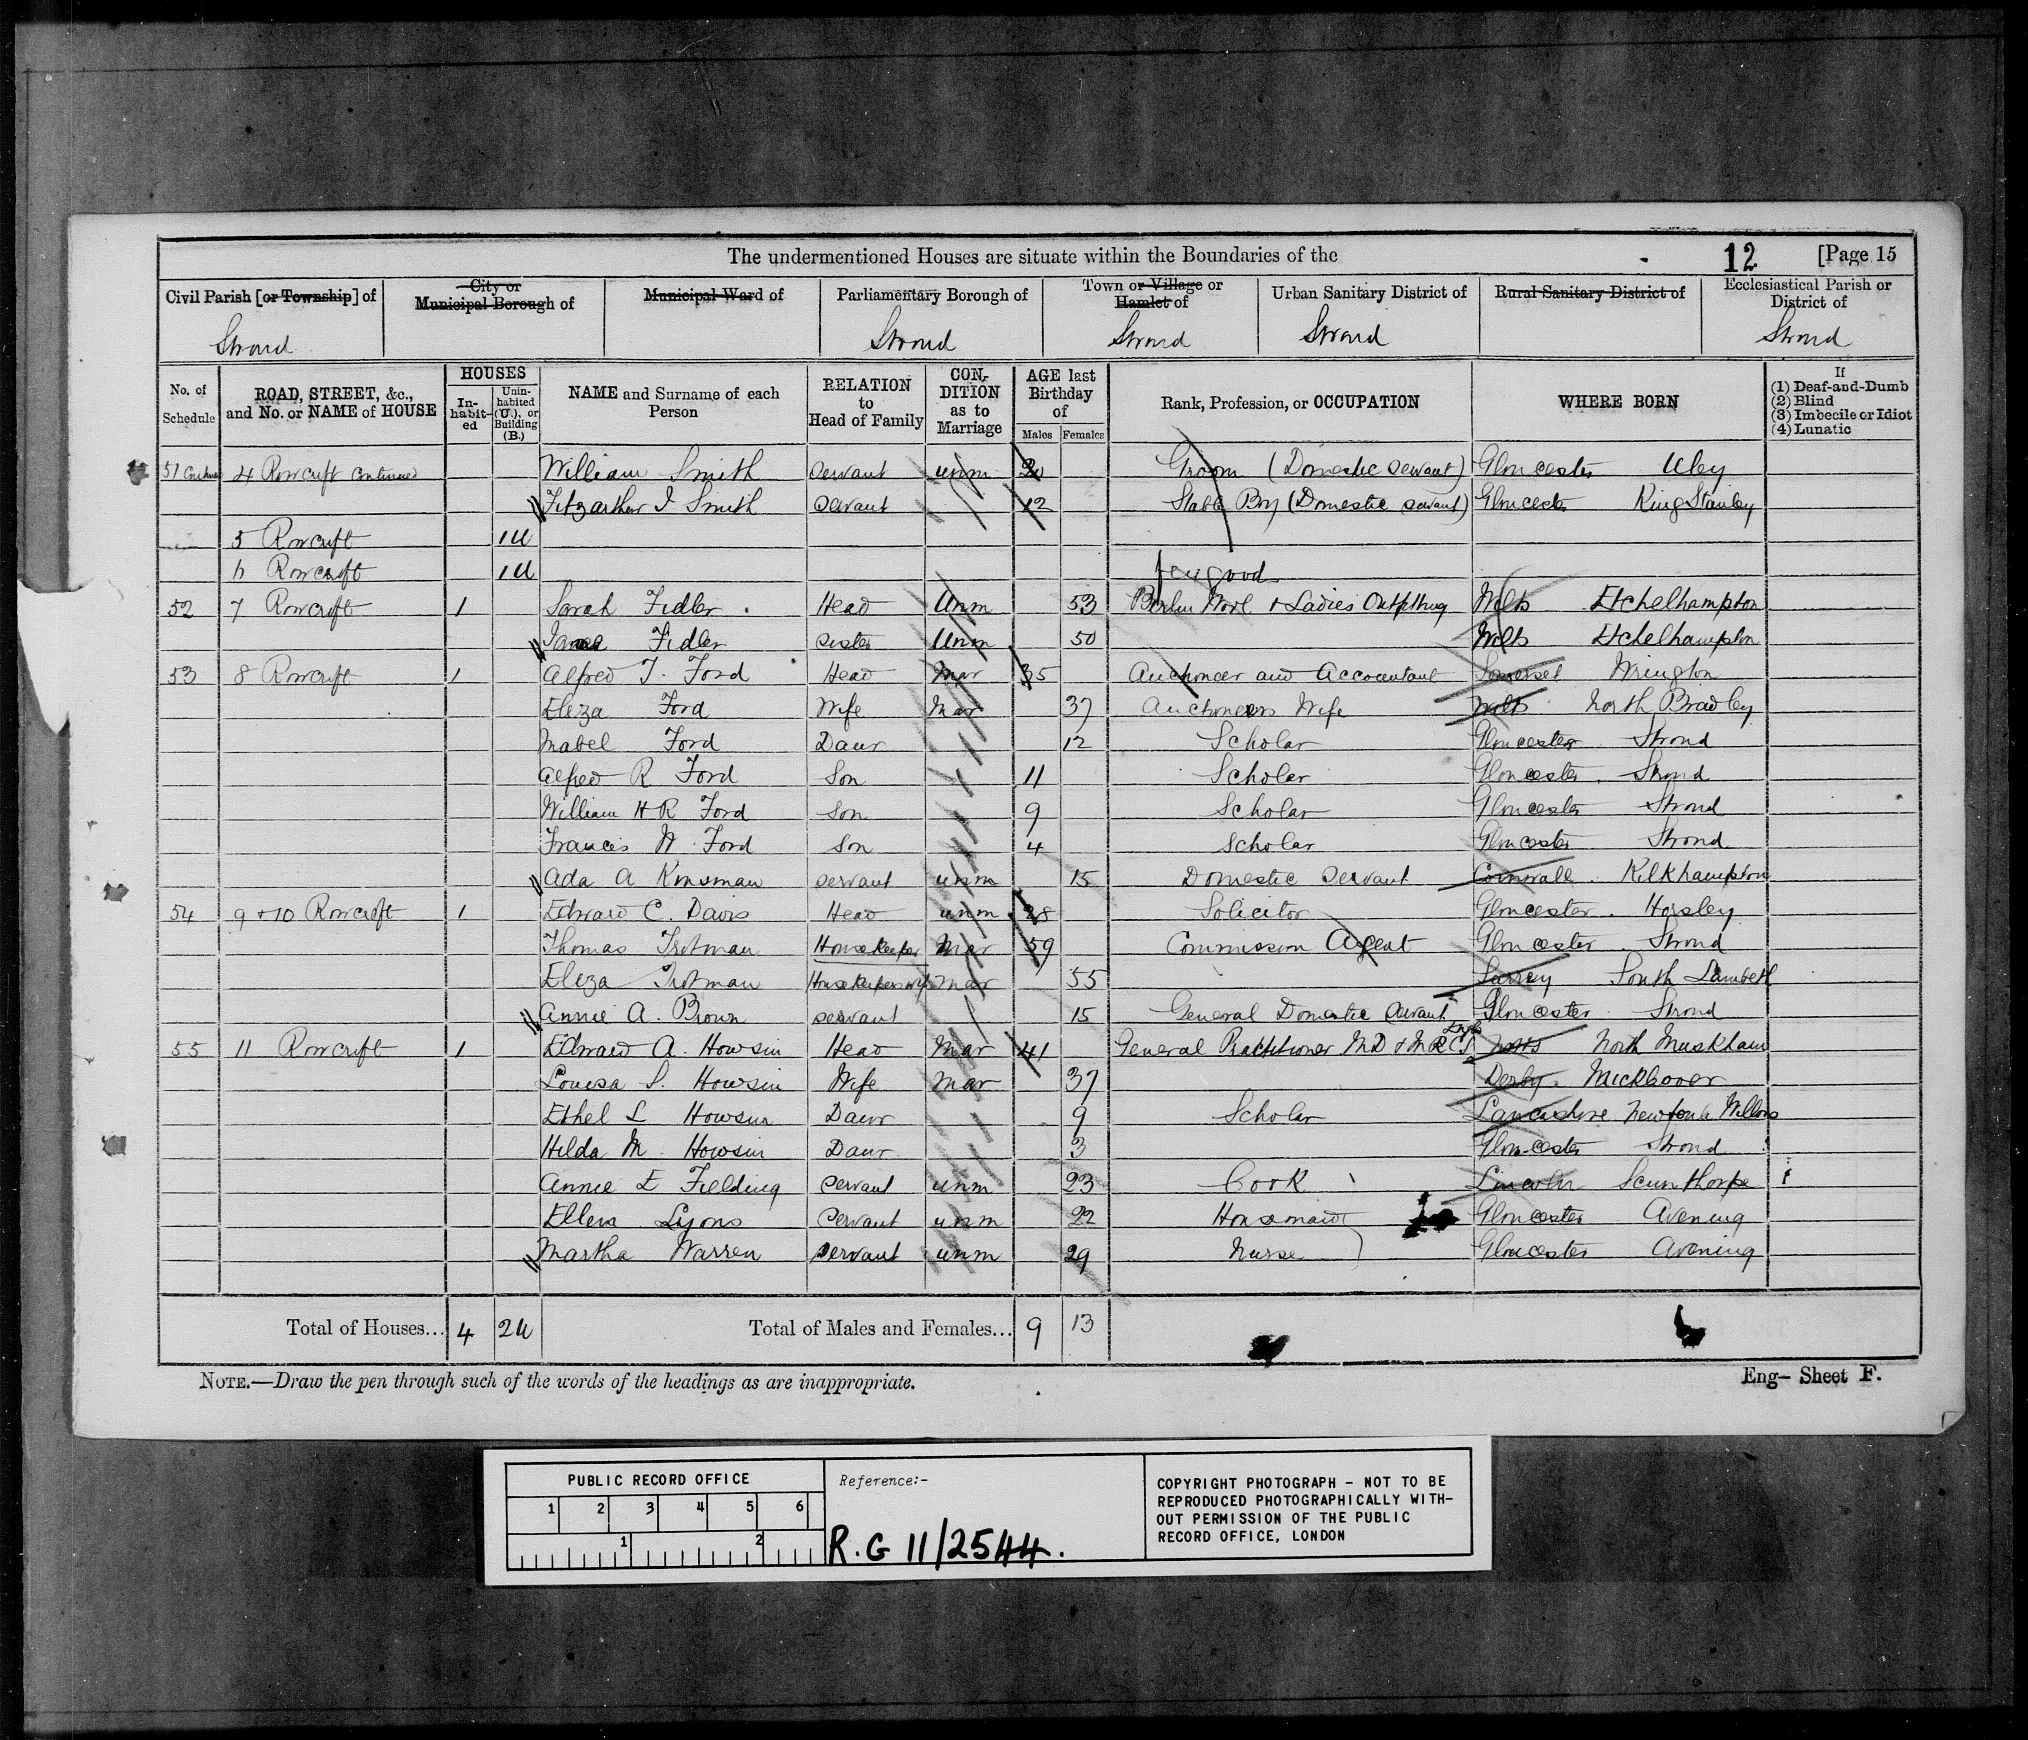 The undermentioned Houses are situate within the Boundaries of the 12 [Page 15
Civil Parish [or Township] of Stroud
City or Municipal Borough of
Municipal Ward of
Parliamentary Borough of Stroud
Town or Village or Hamlet of Stroud
Urban Sanitary District of Stroud
Rural Sanitary District of
Ecclesiastical Parish or District of Stroud
No. of Schedule
ROAD, STREET, &c., and No. or NAME of HOUSE
HOUSES
In-habit-ed
Unin-habited (U.), or Building (B.)
NAME and Surname of each Person
RELATION to Head of Family
CON-DITION as to Marriage
AGE last Birthday of
Males Females
Rank, Profession, or OCCUPATION
WHERE BORN
If (1) Deaf-and-Dumb (2) Blind (3) Imbecile or Idiot (4) Lunatic
51 4 Rowcroft continued William Smith Servant unm 20 Groom (Domestic Servant) Gloucester Uley
Fitzarthur J Smith Servant 12 Stable Boy (Domestic servant) Gloucester King Stanley
5 Rowcroft 1U
6 Rowcroft 1U
52 7 Rowcroft 1 Sarah Fidler Head Unm 53 Berlin Wool & Ladies Outfitting Wilts Etchelhampton
Fidler Sister Unm 50 Wilts Etchelhampton
53 8 Rowcroft 1 Alfred J. Ford Head Mar 35 Auctioneer and Accountant Somerset Wrington
Eliza Ford Wife Mar 37 Auctioneers Wife Wilts North Bradley
Mabel Ford Daur 12 Scholar Gloucester Stroud
Alfred R Ford Son 11 Scholar Gloucester Stroud
William H R Ford Son 9 Scholar Gloucester Stroud
Francis W Ford Son 4 Scholar Gloucester Stroud
Ada A Kinsman Servant unm 15 Domestic Servant Cornwall Kilkhampton
54 9 + 10 Rowcroft 1 Edward C. Davis Head unm 28 Solicitor Gloucester Horsley
Thomas Trotman Housekeeper Mar 59 Commission Agent Gloucester Stroud
Eliza Trotman Housekeepers wife Mar 55 Surrey South Lambeth
Annie A. Brown servant 15 General Domestic servant Gloucester Stroud
55 11 Rowcroft 1 Edward A. Howsin Head Mar 41 General Practitioner M D & M R C S Notts North Muskham
Louisa S. Howsin Wife Mar 37 Derby Mickleover
Ethel L Howsin Daur 9 Scholar Lancashire Newton le Willows
Hilda M. Howsin Daur 3 Gloucester Stroud
Annie E Fielding Servant unm 23 Cook Lincoln Scunthorpe
Ellen Lyons Servant unm 22 Housemaid Gloucester Avening
Martha Warren Servant unm 29 Nurse Gloucester Avening
Total of Houses... 4 2U Total of Males and Females... 9 13
NOTE.—Draw the pen through such of the words of the headings as are inappropriate.
Eng— Sheet F.
PUBLIC RECORD OFFICE
1 2 3 4 5 6
1 2
Reference:-
R.G 11/2544.
COPYRIGHT PHOTOGRAPH – NOT TO BE
REPRODUCED PHOTOGRAPHICALLY WITH-
OUT PERMISSION OF THE PUBLIC
RECORD OFFICE, LONDON